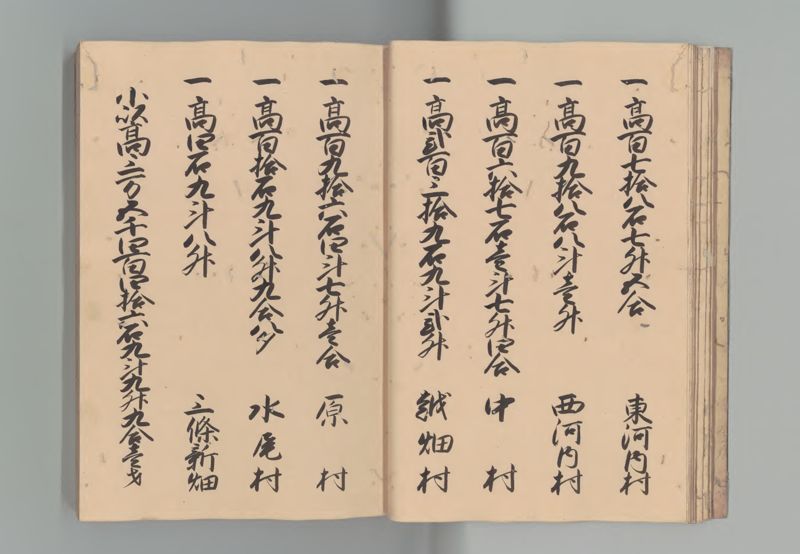 一高百七拾八石七升五合　東河内村
一高百九拾八石八斗壱升　西河内村
一高百六拾七石壱斗七升四合　中村
一高弐百三拾九石九斗弐升　越畑村
一高百九拾六石四斗七升壱合　原村
一高百拾石九斗八升九合八夕　水尾村
一高四石九斗八升　三條新畑
小以高三万五千四百四拾六石九斗九升九合壱才